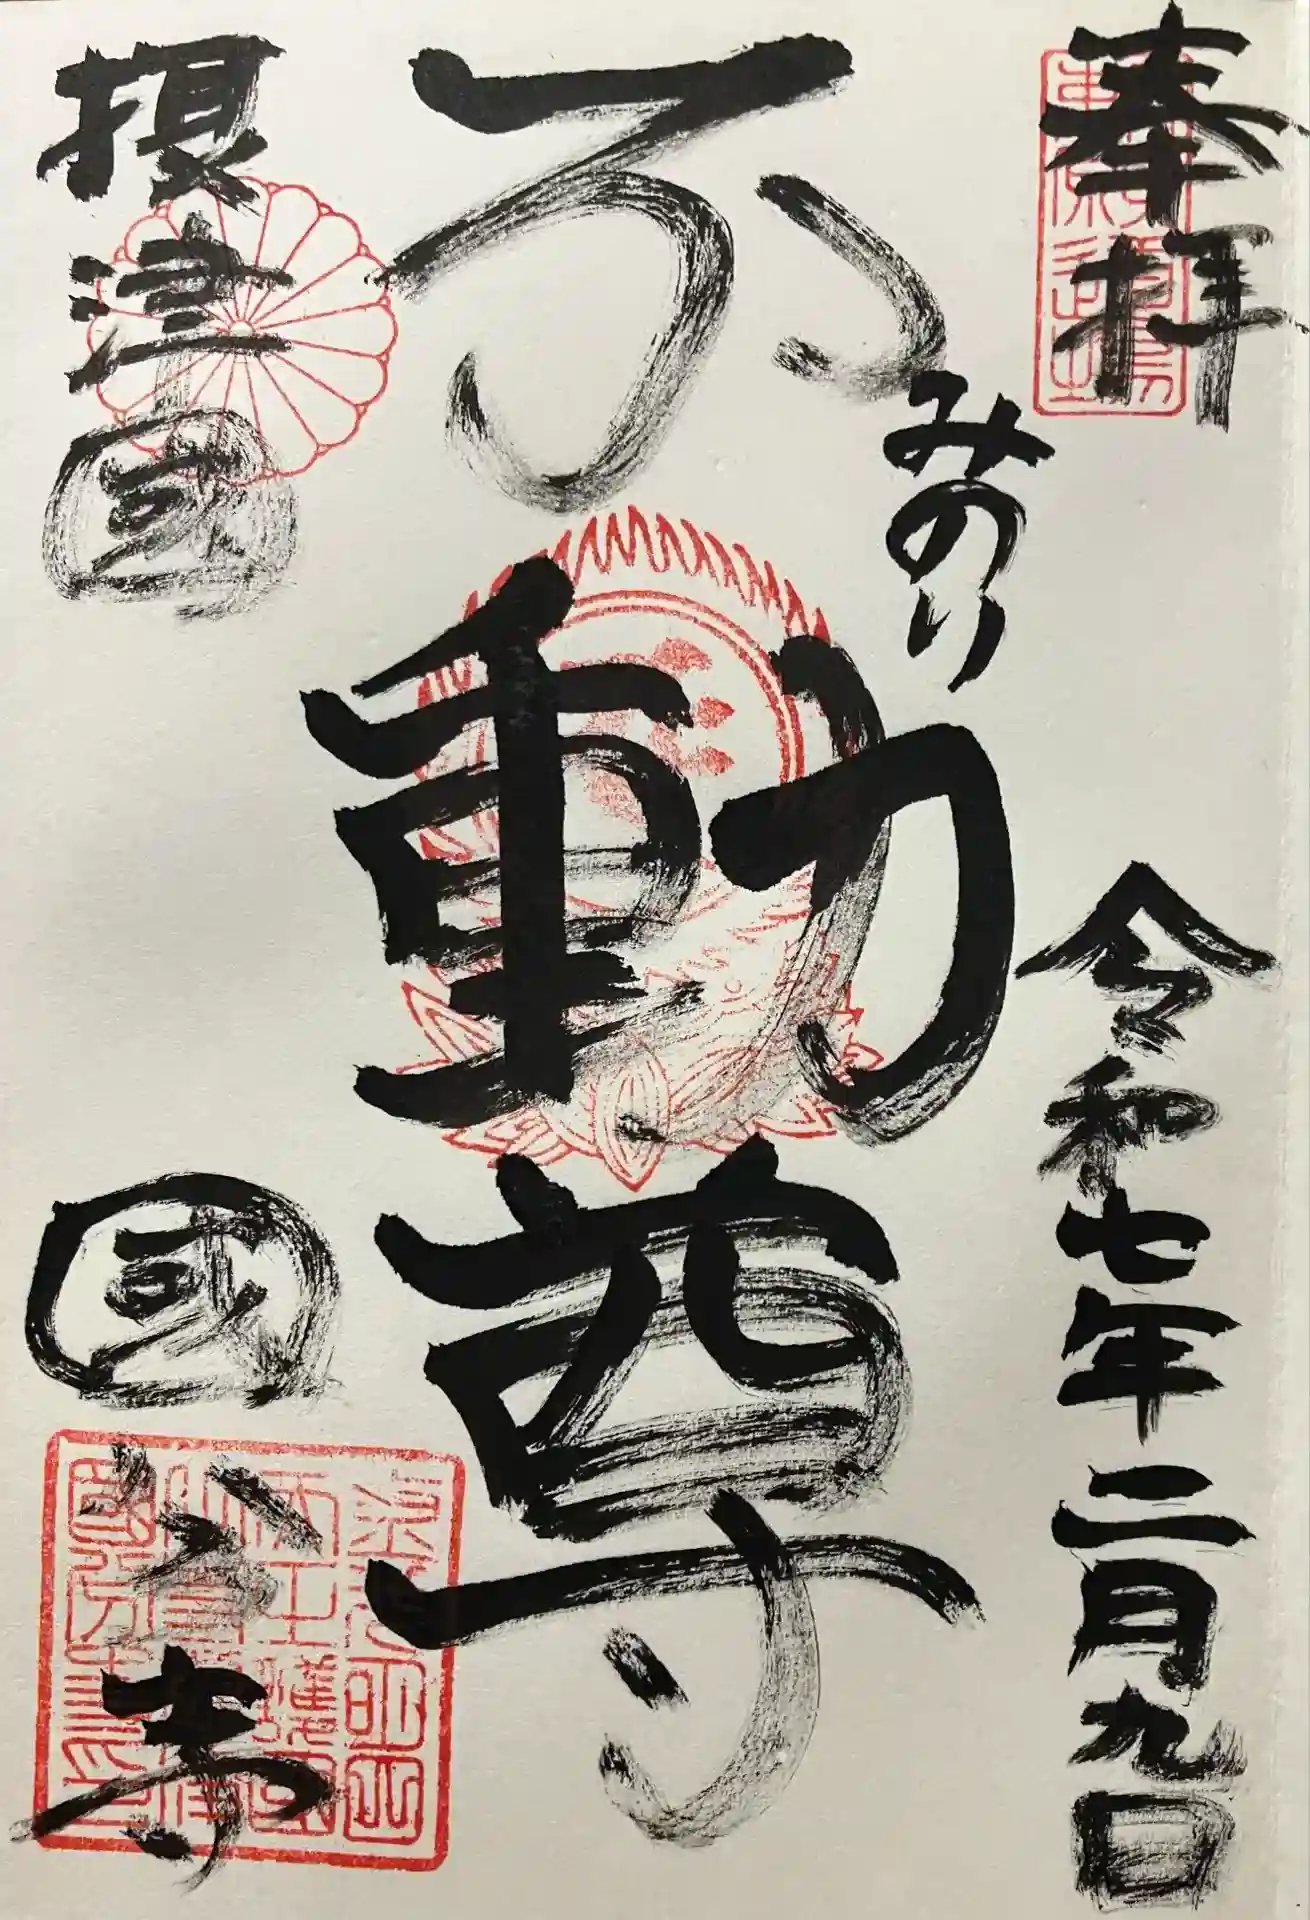 奉拝
令和七年二月九日
みのり
不動尊
摂津国
國分寺